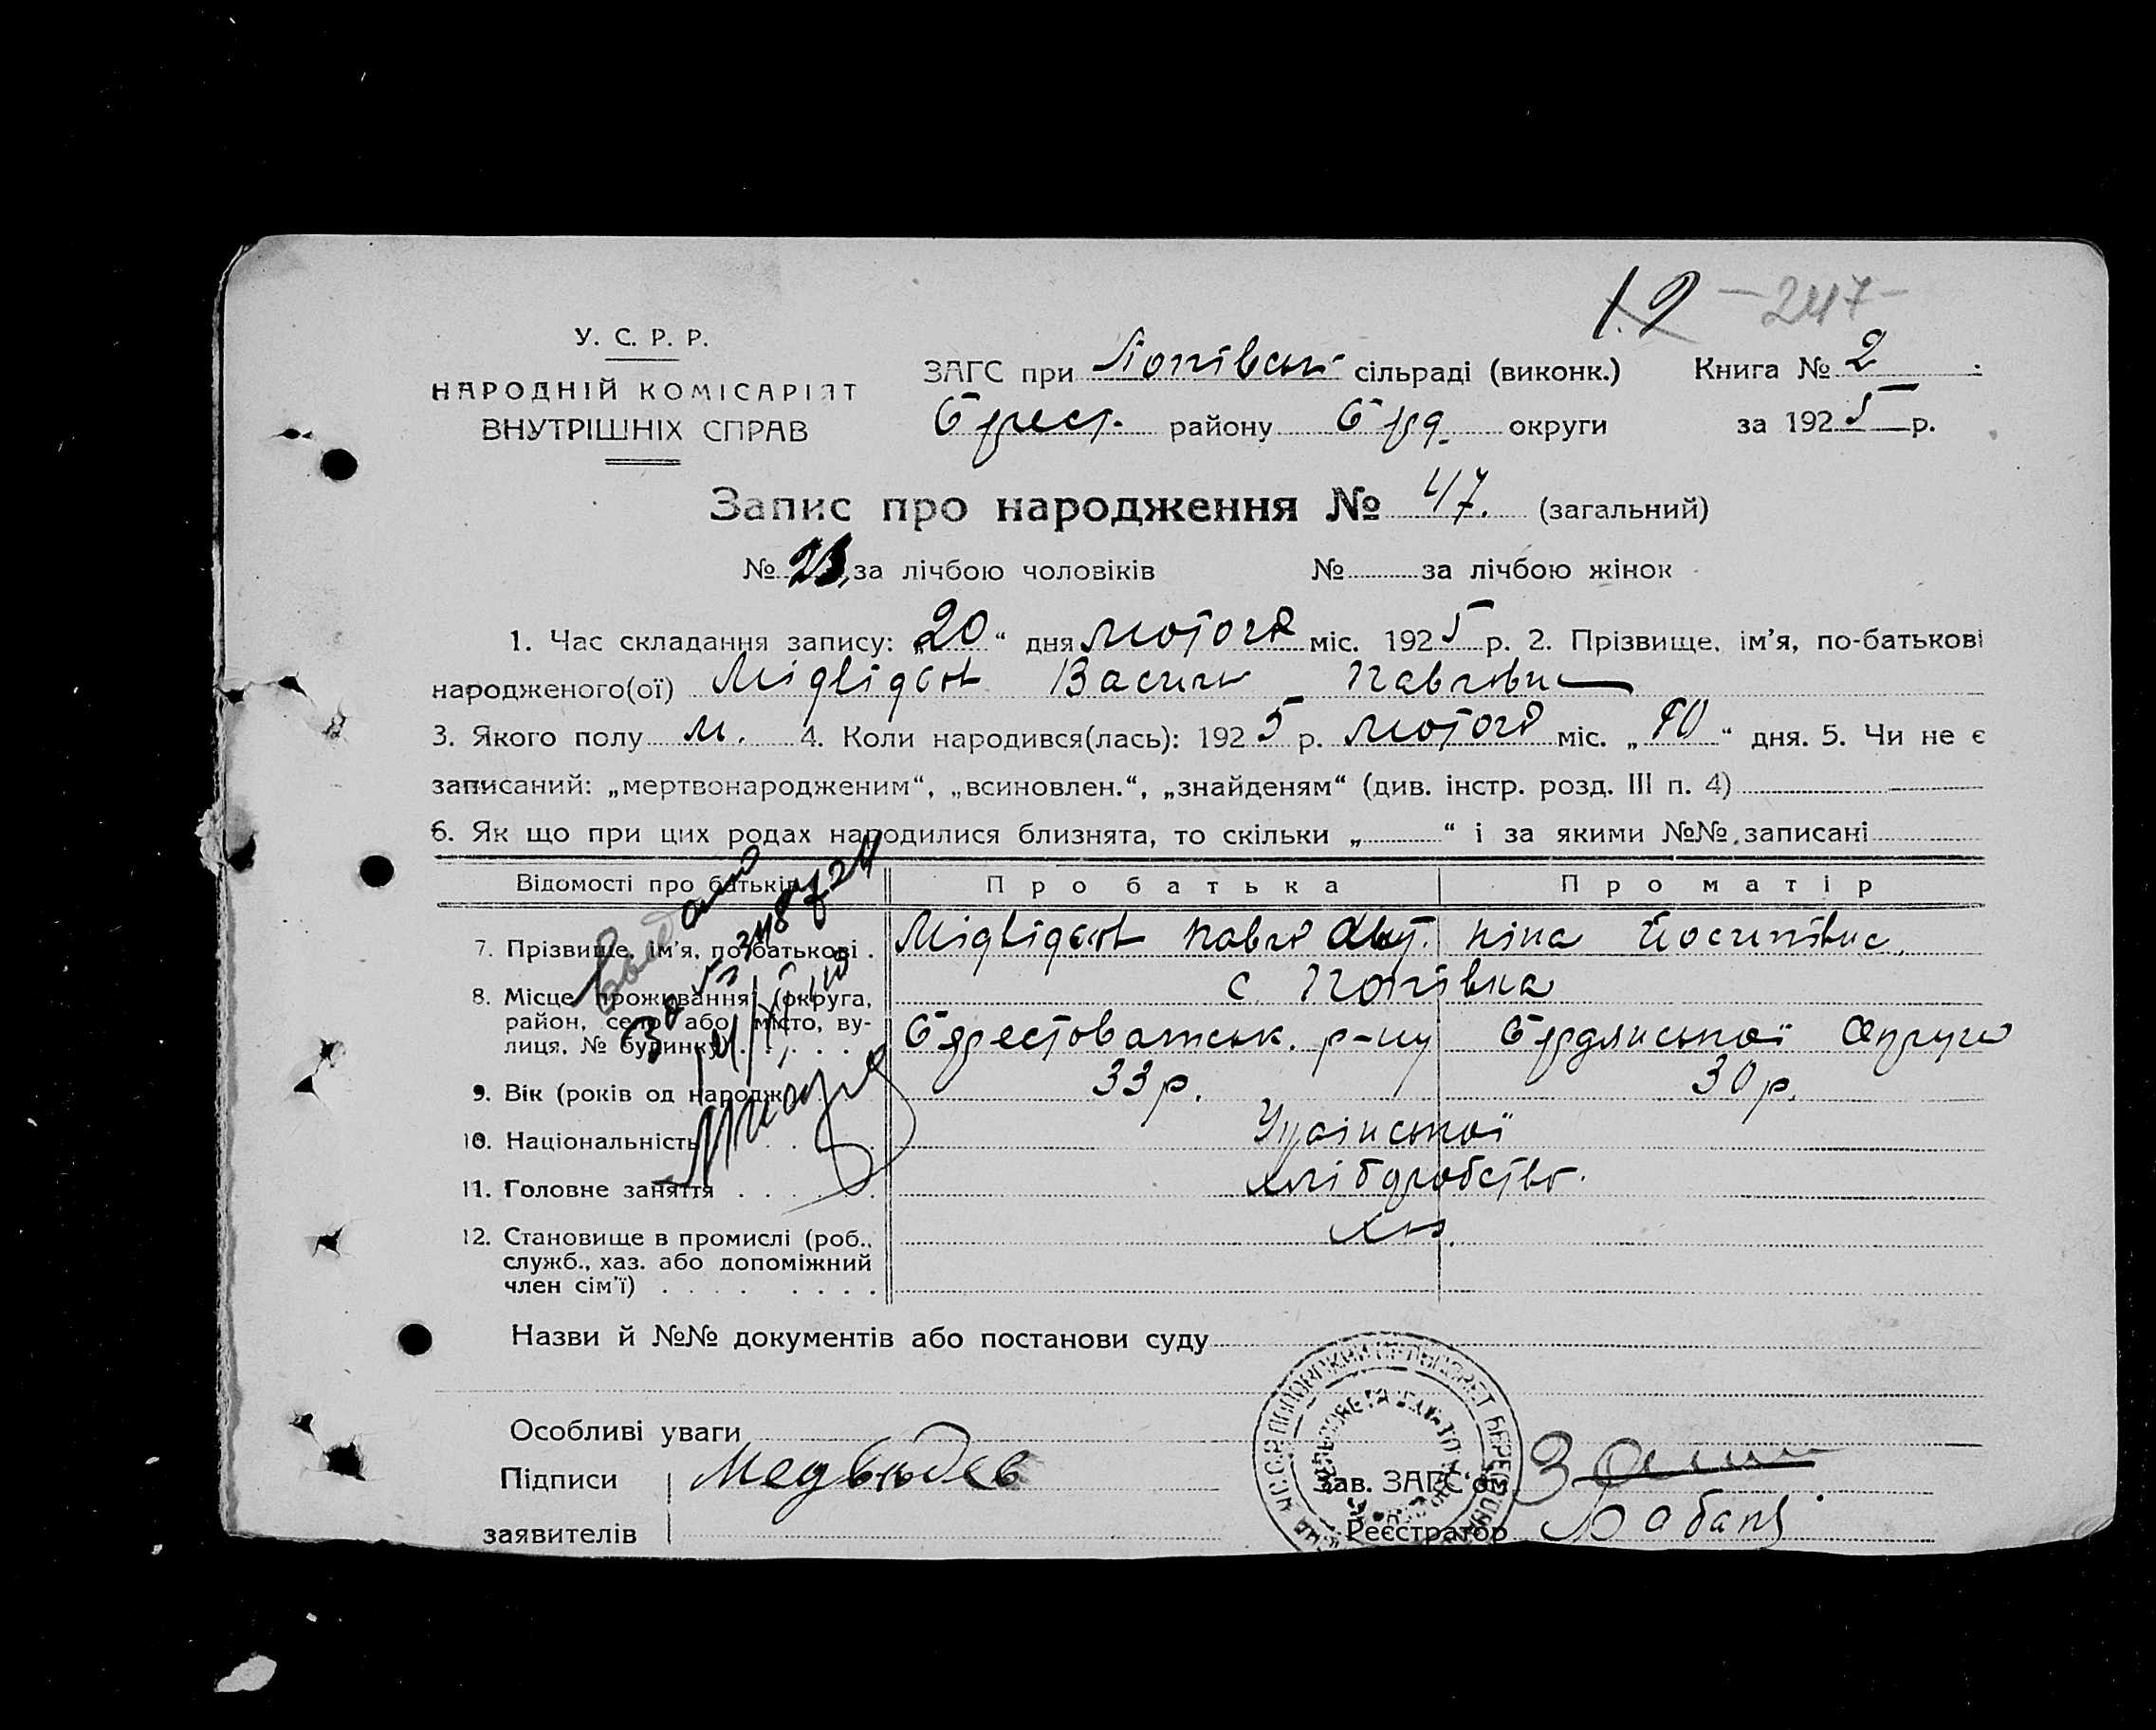 12 — 247 —
У. С. Р. Р.
НАРОДНІЙ КОМІСАРІЯТ
ВНУТРІШНІХ СПРАВ
ЗАГС при Попівськ сільраді (виконк.) Книга № 2
Брест. району Брд. округи за 1925 р.
Запис про народження № 47. (загальний)
№ 23, за лічбою чоловіків № за лічбою жінок
1. Час складання запису: „20“ дня лютого міс. 1925 р. 2. Прізвище, ім’я, по-батькові
народженого(ої) Василь Павлович
3. Якого полу м. 4. Коли народився(лась): 1925 р. лютого міс. „10“ дня. 5. Чи не є
записаний: „мертвонародженим“, „всиновлен.“, „знайденям“ (див. інстр. розд. III п. 4)
6. Як що при цих родах народилися близнята, то скільки „ “ і за якими №№ записані
Відомості про батьків Про батька Про матір
7. Прізвище, ім’я, по-батькові . Павло Йосипівна
8. Місце проживання (округа, с. Попівка
район, село або місто, ву-
лиця, № будинку) Берестоватськ. р-ну Бердянської Округи
9. Вік (років од народж.) 33 р. 30 р.
10. Національність Української
11. Головне заняття хліборобство.
12. Становище в промислі (роб.,
служб., хаз. або допоміжний
член сім’ї)
Назви й №№ документів або постанови суду
Особливі уваги
Підписи Медведев Зав. ЗАГС‘ом
заявителів Реєстратор